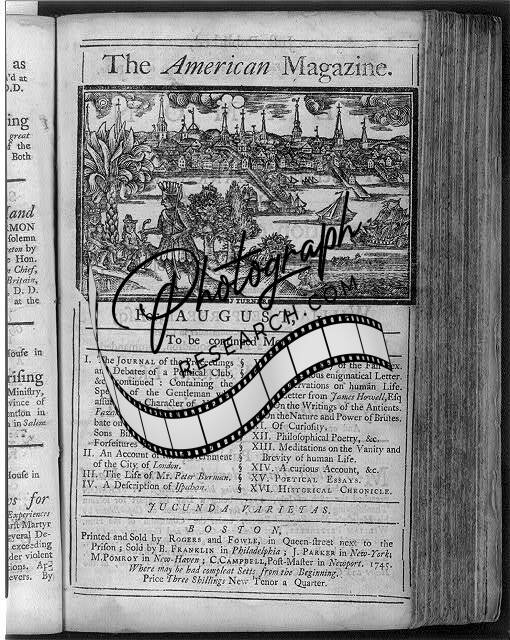 as
'd at
D.D.
ing
great
f the
Both
and
RMON
solemn
reton by
e Hon.
n Chief,
Britain,
D. D.
at the
House in
rising
Ministry,
vince of
ention in
in Salem
House in
s for
Experiences
rst Martyr
everal De-
exceeding
der violent
ions. Ap
evers. By
The American Magazine.
J TURNER
For AUGUS
To be continued
Photograph
RESEARCH.COM
I. The JOURNAL of the Proceedings
and Debates of a Political Club,
&c. continued: Containing the
Spe of the Gentleman w
assu Character of
Faze
bate on
Sons Bi
Forfeitures
II. An Account of Government
of the City of London.
III. The Life of Mr. Peter Burman.
IV. A Description of Ispahan.
of the Fair Sex.
ous enigmatical Letter.
ervations on human Life.
Letter from James Howell, Esq
On the Writings of the Antients.
the Nature and Power of Brutes.
XI. Of Curiosity.
XII. Philosophical Poetry, &c.
XIII. Meditations on the Vanity and
Brevity of human Life.
XIV. A curious Account, &c.
XV. POETICAL ESSAYS.
XVI. HISTORICAL CHRONICLE.
JUCUNDA VARIETAS.
BOSTON,
Printed and Sold by ROGERS and FOWLE, in Queen-street next to the
Prison; Sold by B. FRANKLIN in Philadelphia; J. PARKER in New-York;
M. POMROY in New-Haven; C. CAMPBELL, Post-Master in Newport. 1745.
Where may be had compleat Setts from the Beginning.
Price Three Shillings New Tenor a Quarter.